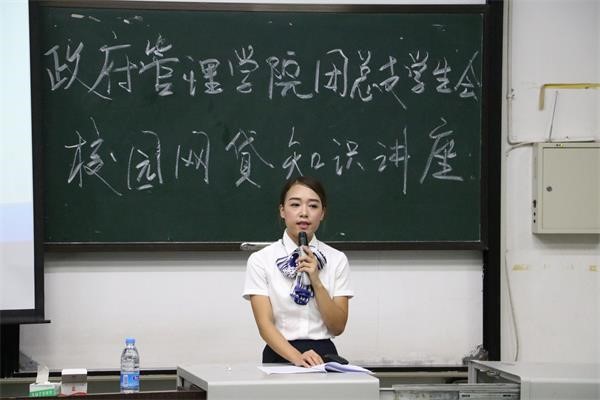 政府管理学院团总支学生会
校园网贷知识讲座